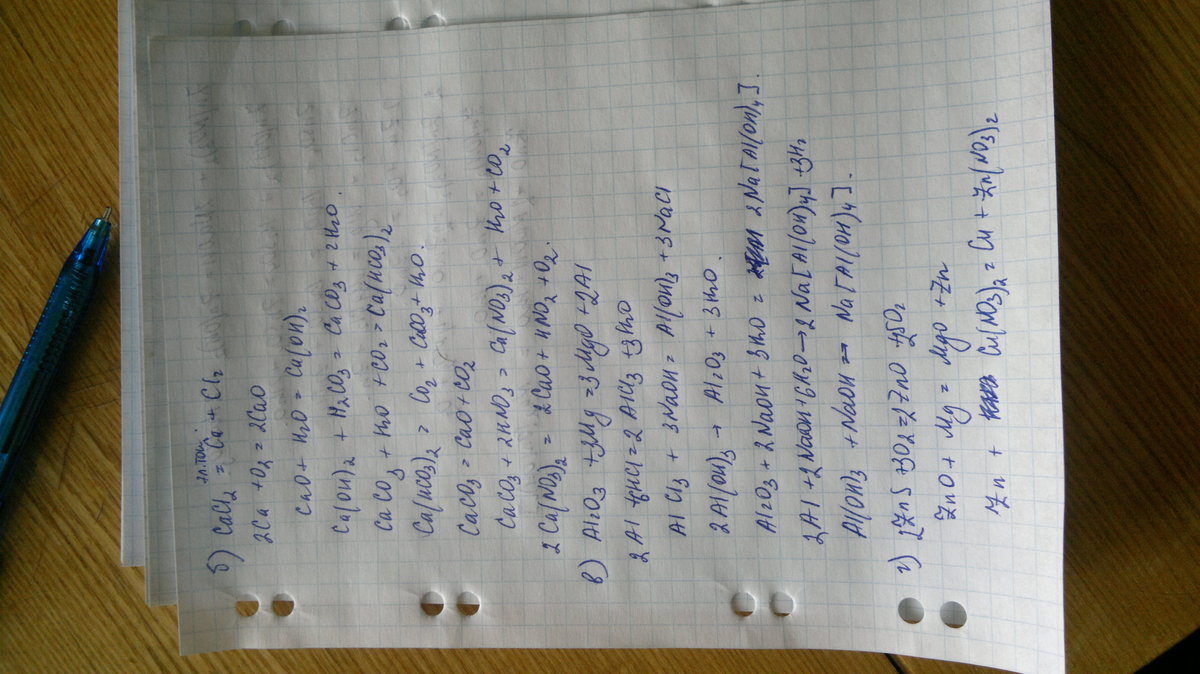 эл.ток
б) CaCl2 = Ca + Cl2
2Ca + O2 = 2CaO
CaO + H2O = Ca(OH)2
Ca(OH)2 + H2CO3 = CaCO3 + 2H2O.
CaCO3 + H2O + CO2 = Ca(HCO3)2
Ca(HCO3)2 = CO2 + CaCO3 + H2O.
CaCO3 = CaO + CO2
CaCO3 + 2HNO3 = Ca(NO3)2 + H2O + CO2
2Ca(NO3)2 = 2CaO + 4NO2 + O2.
в) Al2O3 + 3Mg = 3MgO + 2Al
2Al + 6HCl = 2AlCl3 + 3H2O
AlCl3 + 3NaOH = Al(OH)3 + 3NaCl
2Al(OH)3 → Al2O3 + 3H2O.
Al2O3 + 2NaOH + 3H2O = 2Na[Al(OH)4].
2Al + 2NaOH + 6H2O → 2Na[Al(OH)4] + 3H2
Al(OH)3 + NaOH → Na[Al(OH)4].
г) 2ZnS + 3O2 = 2ZnO + SO2
ZnO + Mg = MgO + Zn
Zn + Cu(NO3)2 = Cu + Zn(NO3)2